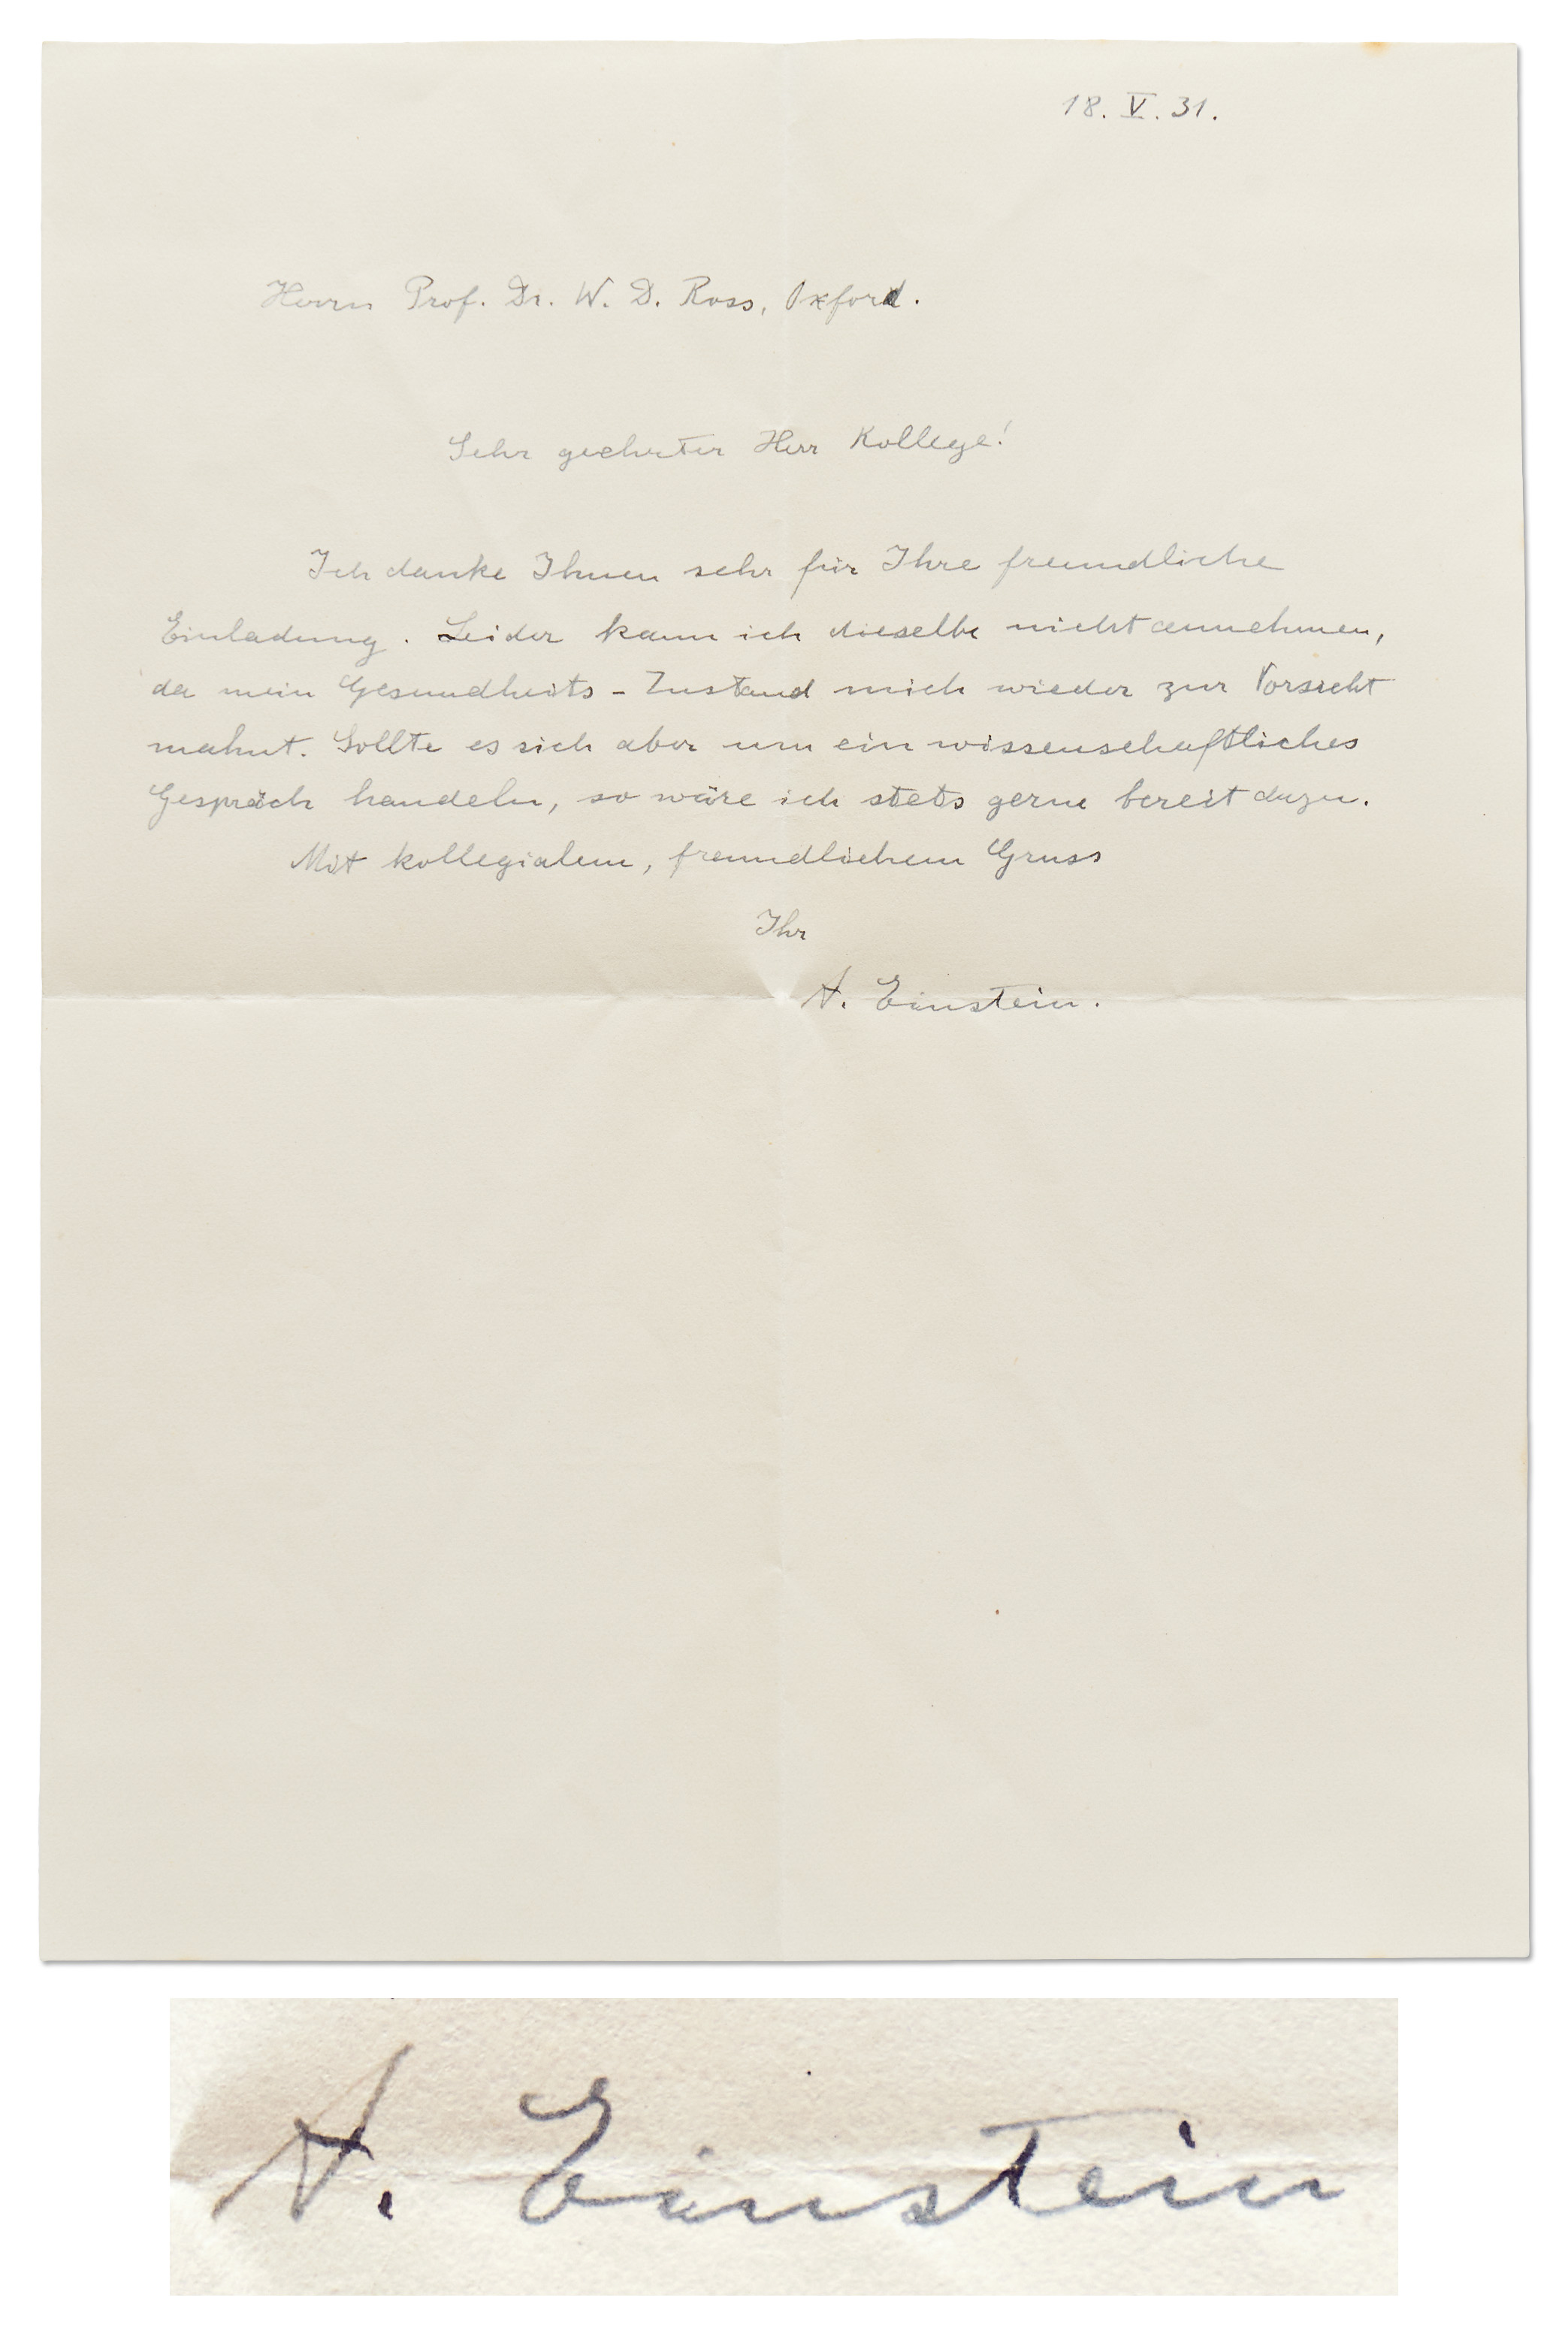 18. V. 31.
Herrn Prof. Dr. W. D. Ross, Oxford.
Sehr geehrter Herr Kollege!
Ich danke Ihnen sehr für Ihre freundliche
Einladung. Leider kann ich dieselbe nicht annehmen,
da mein Gesundheits-Zustand mich wieder zur Vorsicht
mahnt. Sollte es sich aber um ein wissenschaftliches
Gespräch handeln, so wäre ich stets gerne bereit dazu.
Mit kollegialem, freundlichem Gruss
Ihr
A. Einstein.
A. Einstein